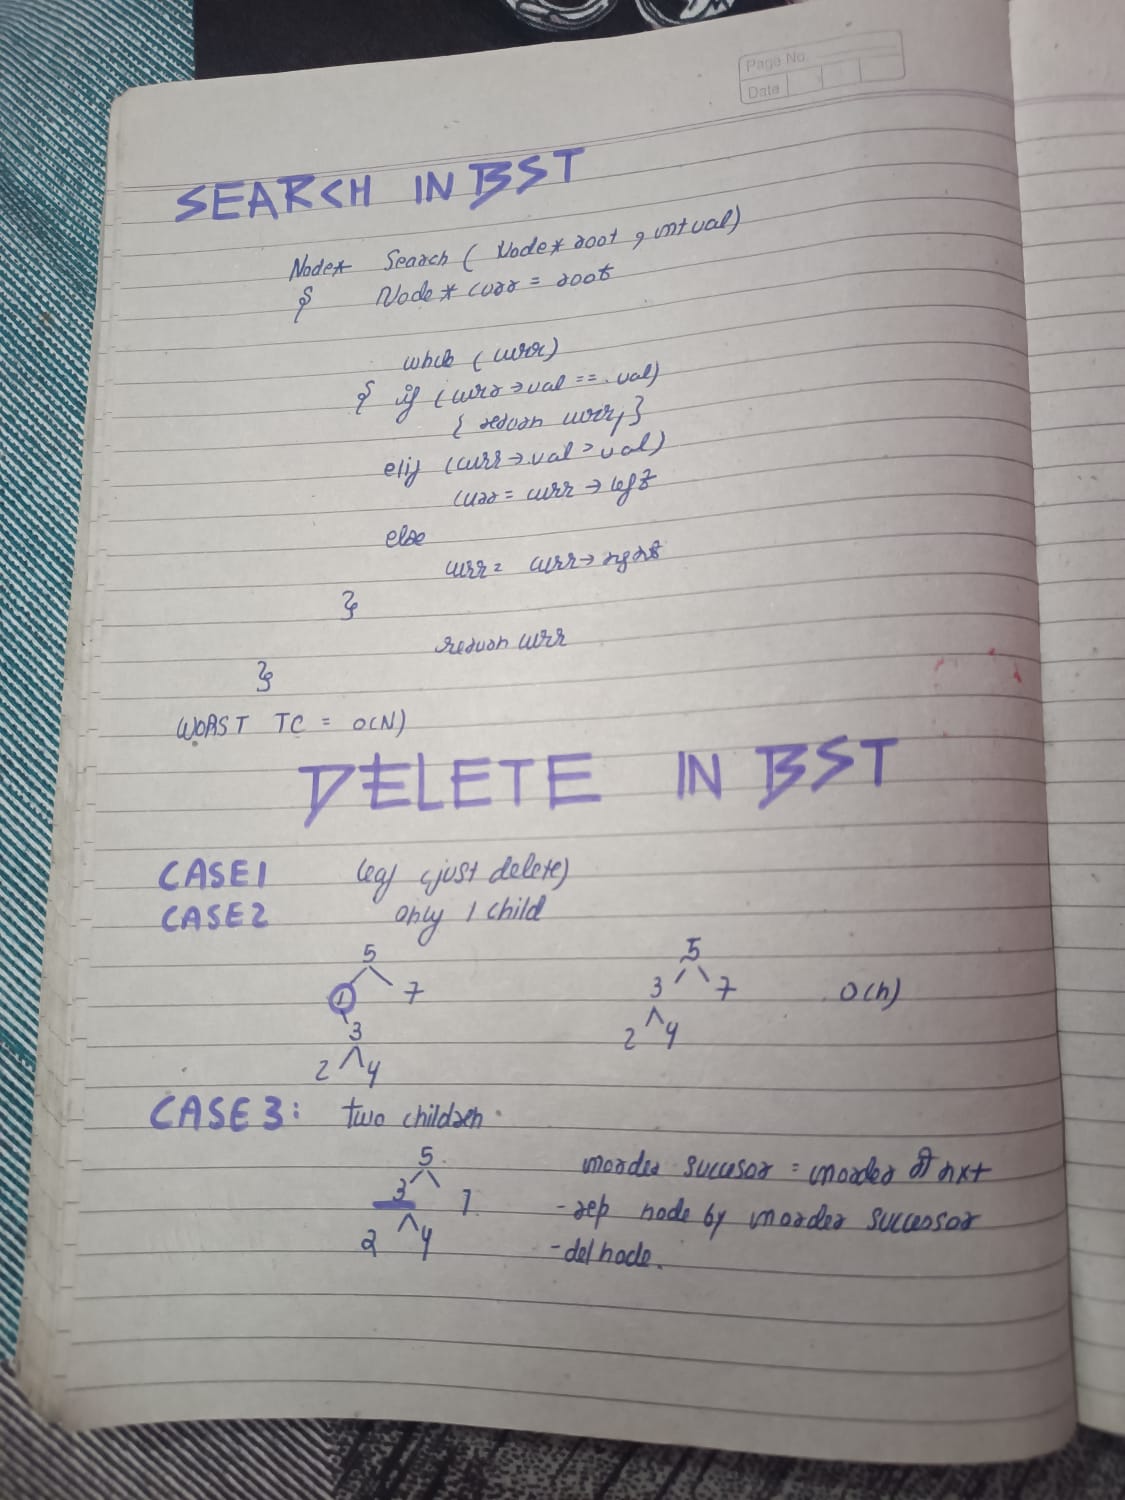 Page No.
Date
SEARCH IN BST
Node* Search ( Node* root , int val)
{ Node* curr = root
while (curr)
{ if (curr→val == val)
{ return curr; }
elif (curr→val > val)
curr = curr → left
else
curr = curr → right
}
return curr
}
WORST TC = O(N)
DELETE IN BST
CASE1 leaf (just delete)
CASE2 only 1 child
5 5
1 7 3 7 O(h)
3 2 4
2 4
CASE 3: two children
5 inorder succesor = inorder nxt
3 7 - rep node by inorder successor
2 4 - del node.